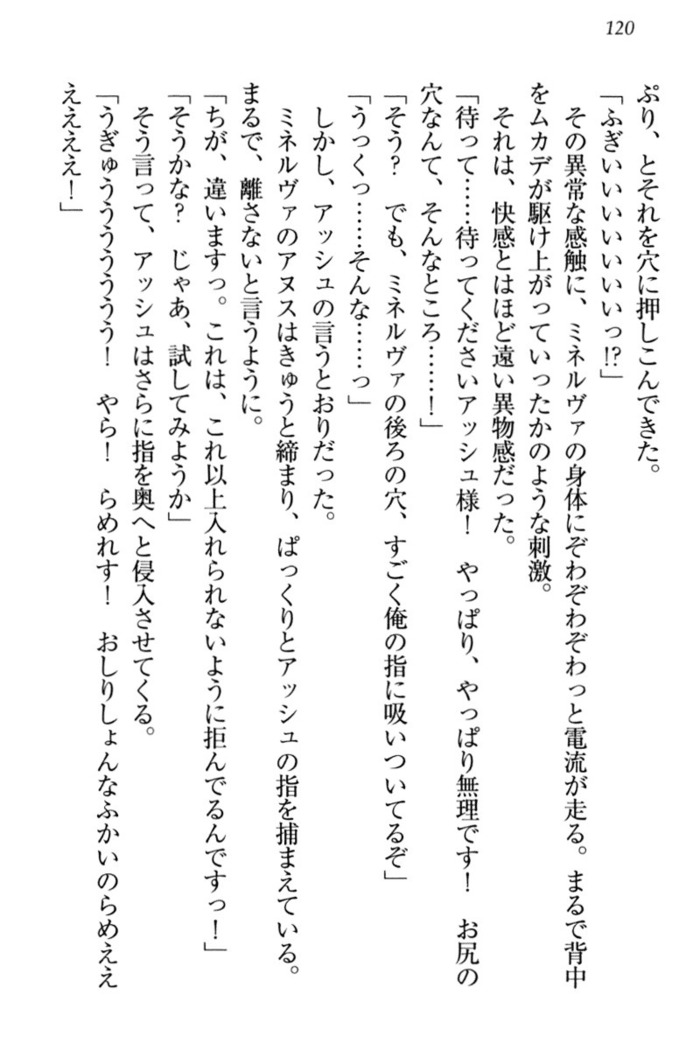 120
ぷり、とそれを穴に押しこんできた。
「ふぎいいいいいいいっ!?」
その異常な感触に、ミネルヴァの身体にぞわぞわぞわっと電流が走る。まるで背中
をムカデが駆け上がっていったかのような刺激。
それは、快感とはほど遠い異物感だった。
「待って……待ってくださいアッシュ様！　やっぱり、やっぱり無理です！　お尻の
穴なんて、そんなところ……！」
「そう？　でも、ミネルヴァの後ろの穴、すごく俺の指に吸いついてるぞ」
「うっくっ……そんな……っ」
しかし、アッシュの言うとおりだった。
ミネルヴァのアヌスはきゅうと締まり、ぱっくりとアッシュの指を捕まえている。
まるで、離さないと言うように。
「ちが、違いますっ。これは、これ以上入れられないように拒んでるんですっ！」
「そうかな？　じゃあ、試してみようか」
そう言って、アッシュはさらに指を奥へと侵入させてくる。
「うぎゅうううううう！　やら！　らめれす！　おしりしょんなふかいのらめええ
ええええ！」